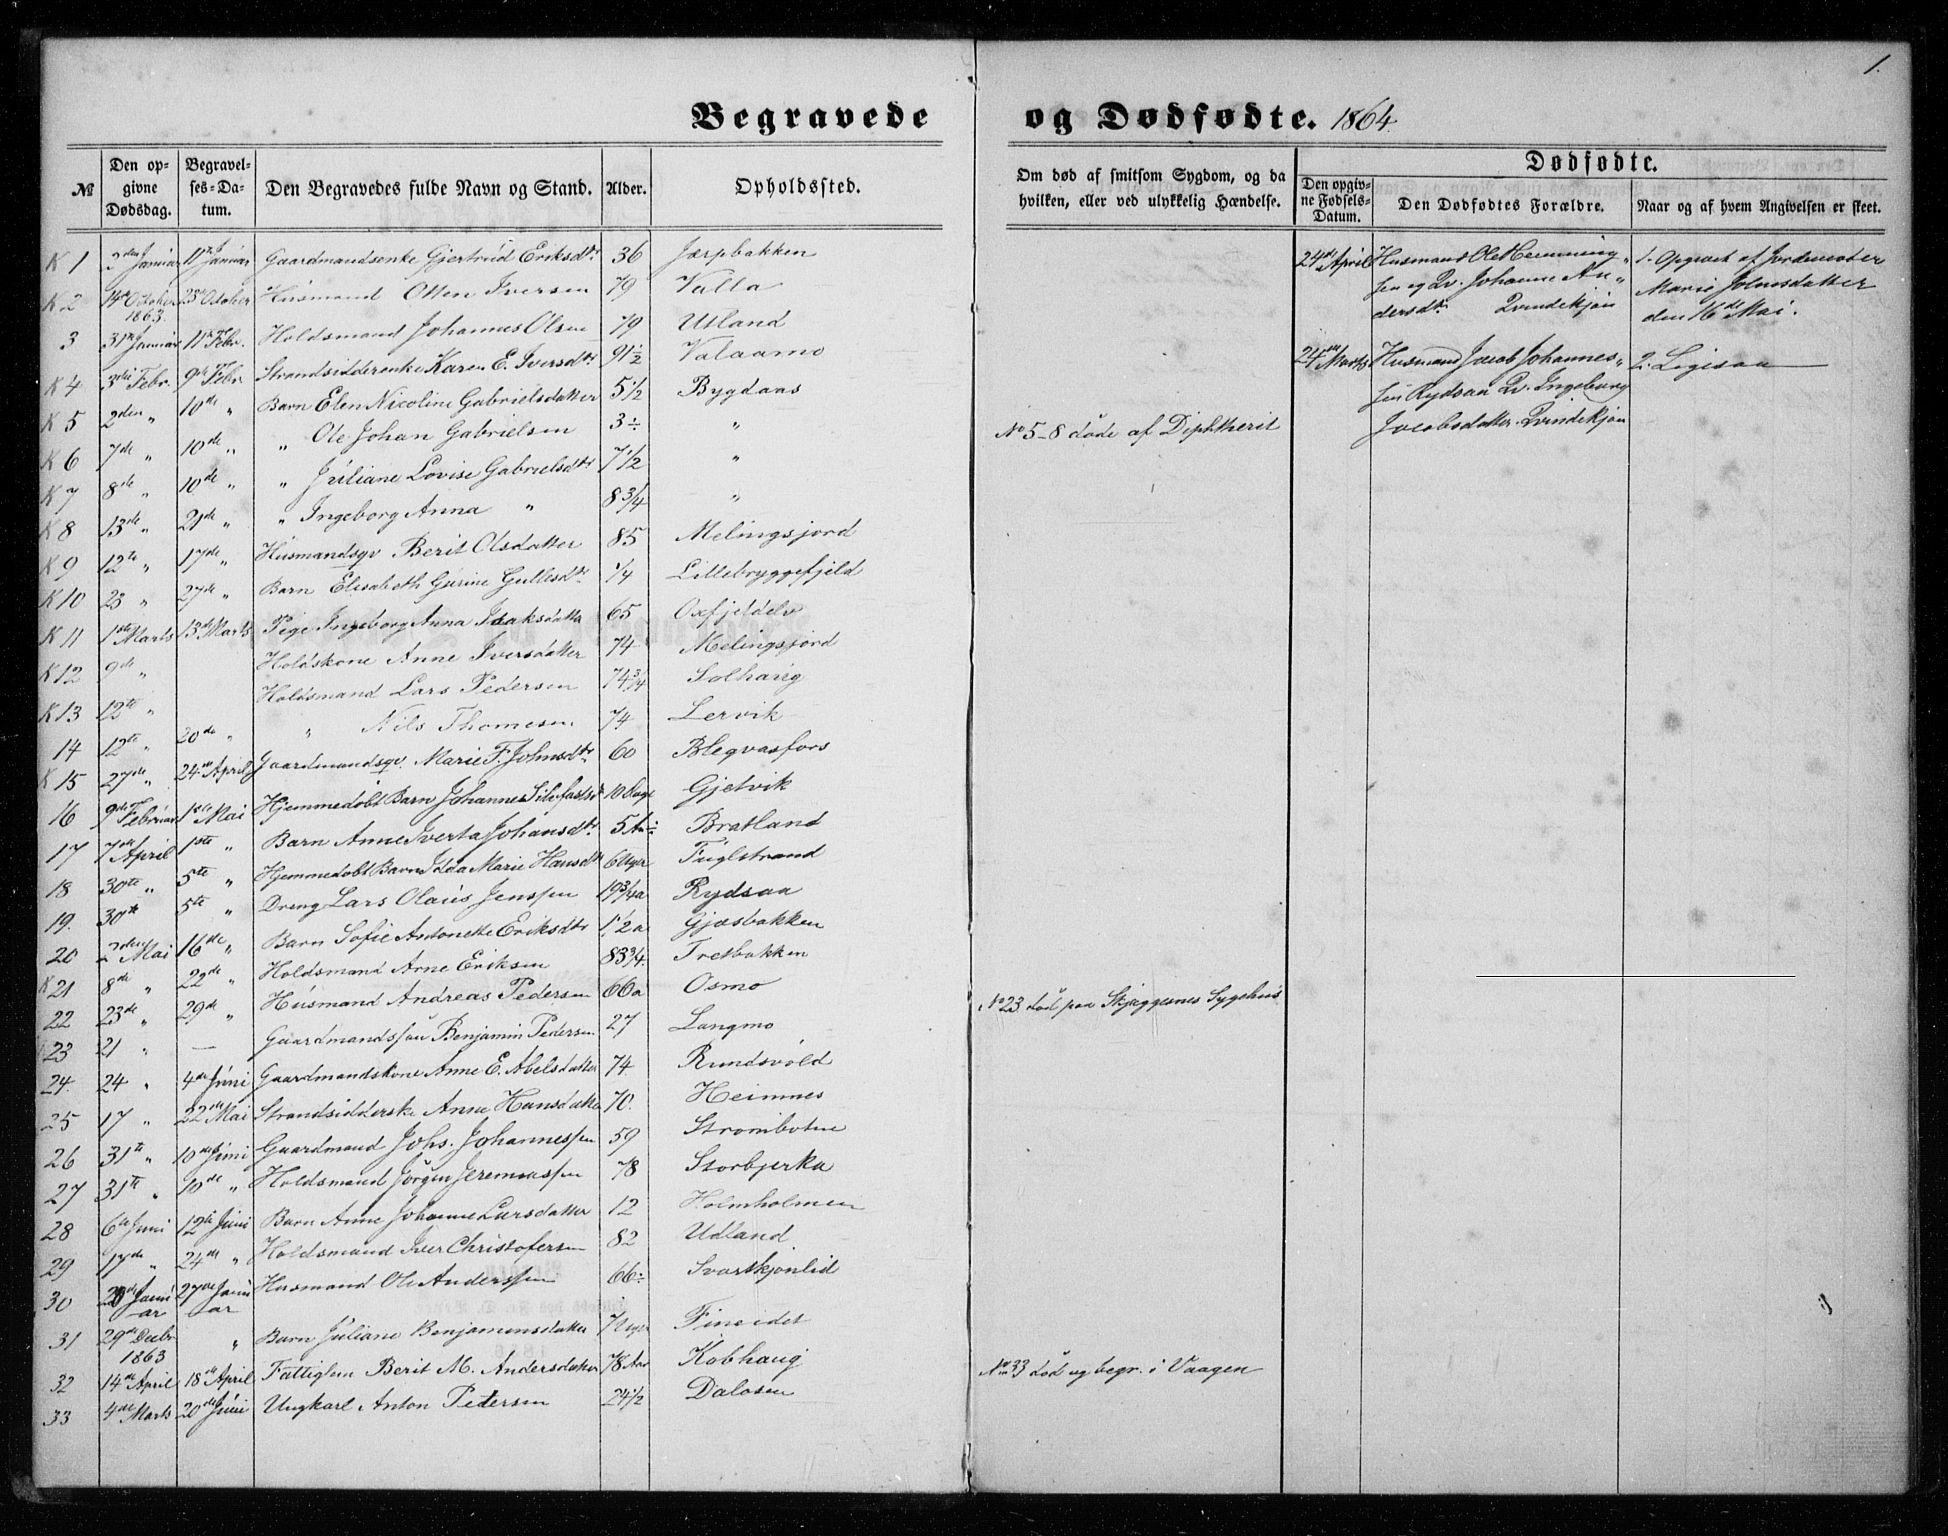 1.
Begravede og Dødfødte. 1864.
№ Den opgivne Dødsdag. Begravelses-Datum. Den Begravedes fulde Navn og Stand. Alder. Opholdssted. Om død af smitsom Sygdom, og da hvilken, eller ved ulykkelig Hændelse.
Dødfødte.
Den opgivne Fødsels-Datum. Den Dødfødtes Forældre. Naar og af hvem Angivelsen er skeet.
K 1 3den Januar 11te Januar Gaardmandsenke Gjertrud Eriksdtr 36 Jærpbakken
K 2 14de October 1863. 23de October Husmand Otten Iversen 79 Valla
3 31te Januar 11te Febr. Holdsmand Johannes Olsen 79 Utland
K 4 3die Febr. 9de Febr. Strandsidderenke Karen E. Iversdtr 91 1/2 Valaamo
K 5 2den " 10de " Barn Elen Nicoline Gabrielsdatter 5 1/2 Bygdaas
K 6 7de " 10de " " Ole Johan Gabrielsen 3 ÷ "
K 7 8de " 10de " " Juliane Lovise Gabrielsdtr 7 1/2 "
K 8 13de " 21de " " Ingeborg Anna " 8 3/4 "
K 9 12te " 17de " Husmandsqv Berit Olsdatter 85 Melingsjord
K 10 23 " 27de " Barn Elisabeth Gurine Gullesdtr 1/4 Lillebryggefjeld
K 11 1ste Marts 13de Marts Pige Ingeborg Anna Isaksdatter 65 Oxfjeldelv
K 12 9de " Holdskone Anne Iversdatter 74 Melingsjord
K 13 12te " Holdsmand Lars Pedersen 74 3/4 Solhaug
14 12te " 20de " " Nils Thomesen 74 Lervik
K 15 27de " 24de April Gaardmandsqv. Marie F. Johnsdtr 60 Blegvasfors
16 9de Februar 1ste Mai Hjemmedøbt Barn Johannes Silefastsen 10 Dage Gjetvik
17 7de April 1ste " Barn Anne Iverta Johansdtr 5 Aar ÷ Bratland
18 30te " 5te " Hjemmedøbt Barn Idda Marie Hansdtr 6 Uger Fuglstrand
19. 30te 5te " Dreng Lars Olaus Jenssen 19 3/4 a Rydsaa
20 2den Mai 16de " Barn Sofie Antonette Eriksdtr 1 1/2 a Gjæsbakken
K 21 8de " 22de " Holdsmand Arne Eriksen 83 3/4. Tretbakken
22 23de " 29de " Husmand Andreas Pedersen 66 a Osmo
23 21 " — Gaardmandssøn Benjamin Pedersen 27 Langmo
24. 24 " 4de Juni Gaardmandskone Anne E. Abelsdatter 74. Rundsvold
25 17 " 22de Mai Strandsidderske Anne Hansdatter 70. Heimnes
26 31te " 10de Juni Gaardmand Johs. Johannessen 59 Strømbotne
27 31te " 10de " Holdsmand Jørgen Jeremiassen 78 Storbjerka
28 6te Juni 12te Juni Barn Anne Johanne Larsdatter 12 Holmholmen
29 17de " 24de " Holdsmand Iver Christofersen 82 Udland
30 20de Januar 27de Januar Husmand Ole Anderssen 66 ÷ Svartkjønlid
31 29de Decbr 1863 " Barn Juliane Benjaminsdatter 7 Uger Fineidet
32 14de April 18de April Fattiglem Berit M. Andersdatter 78 Aar Kobhaug
33 4de Marts 20de Juni Ungkarl Anton Pedersen 24 1/2 Dalosen
No 5-8 døde af Diphtherit
No 23 død paa Skjæggesnes Sygehus
No 33 død og begr. i Vaagen
24de April Husmand Ole Henningsen og Qv. Johanne Andersdtr Qvindekjøn
1. Opgivet af Jordemoder Marie Johnsdatter den 16de Mai.
24de Marts Husmand Jacob Johannessen Rydsaa Qv. Ingeborg Jacobsdatter. Qvindekjøn
2. Ligesaa